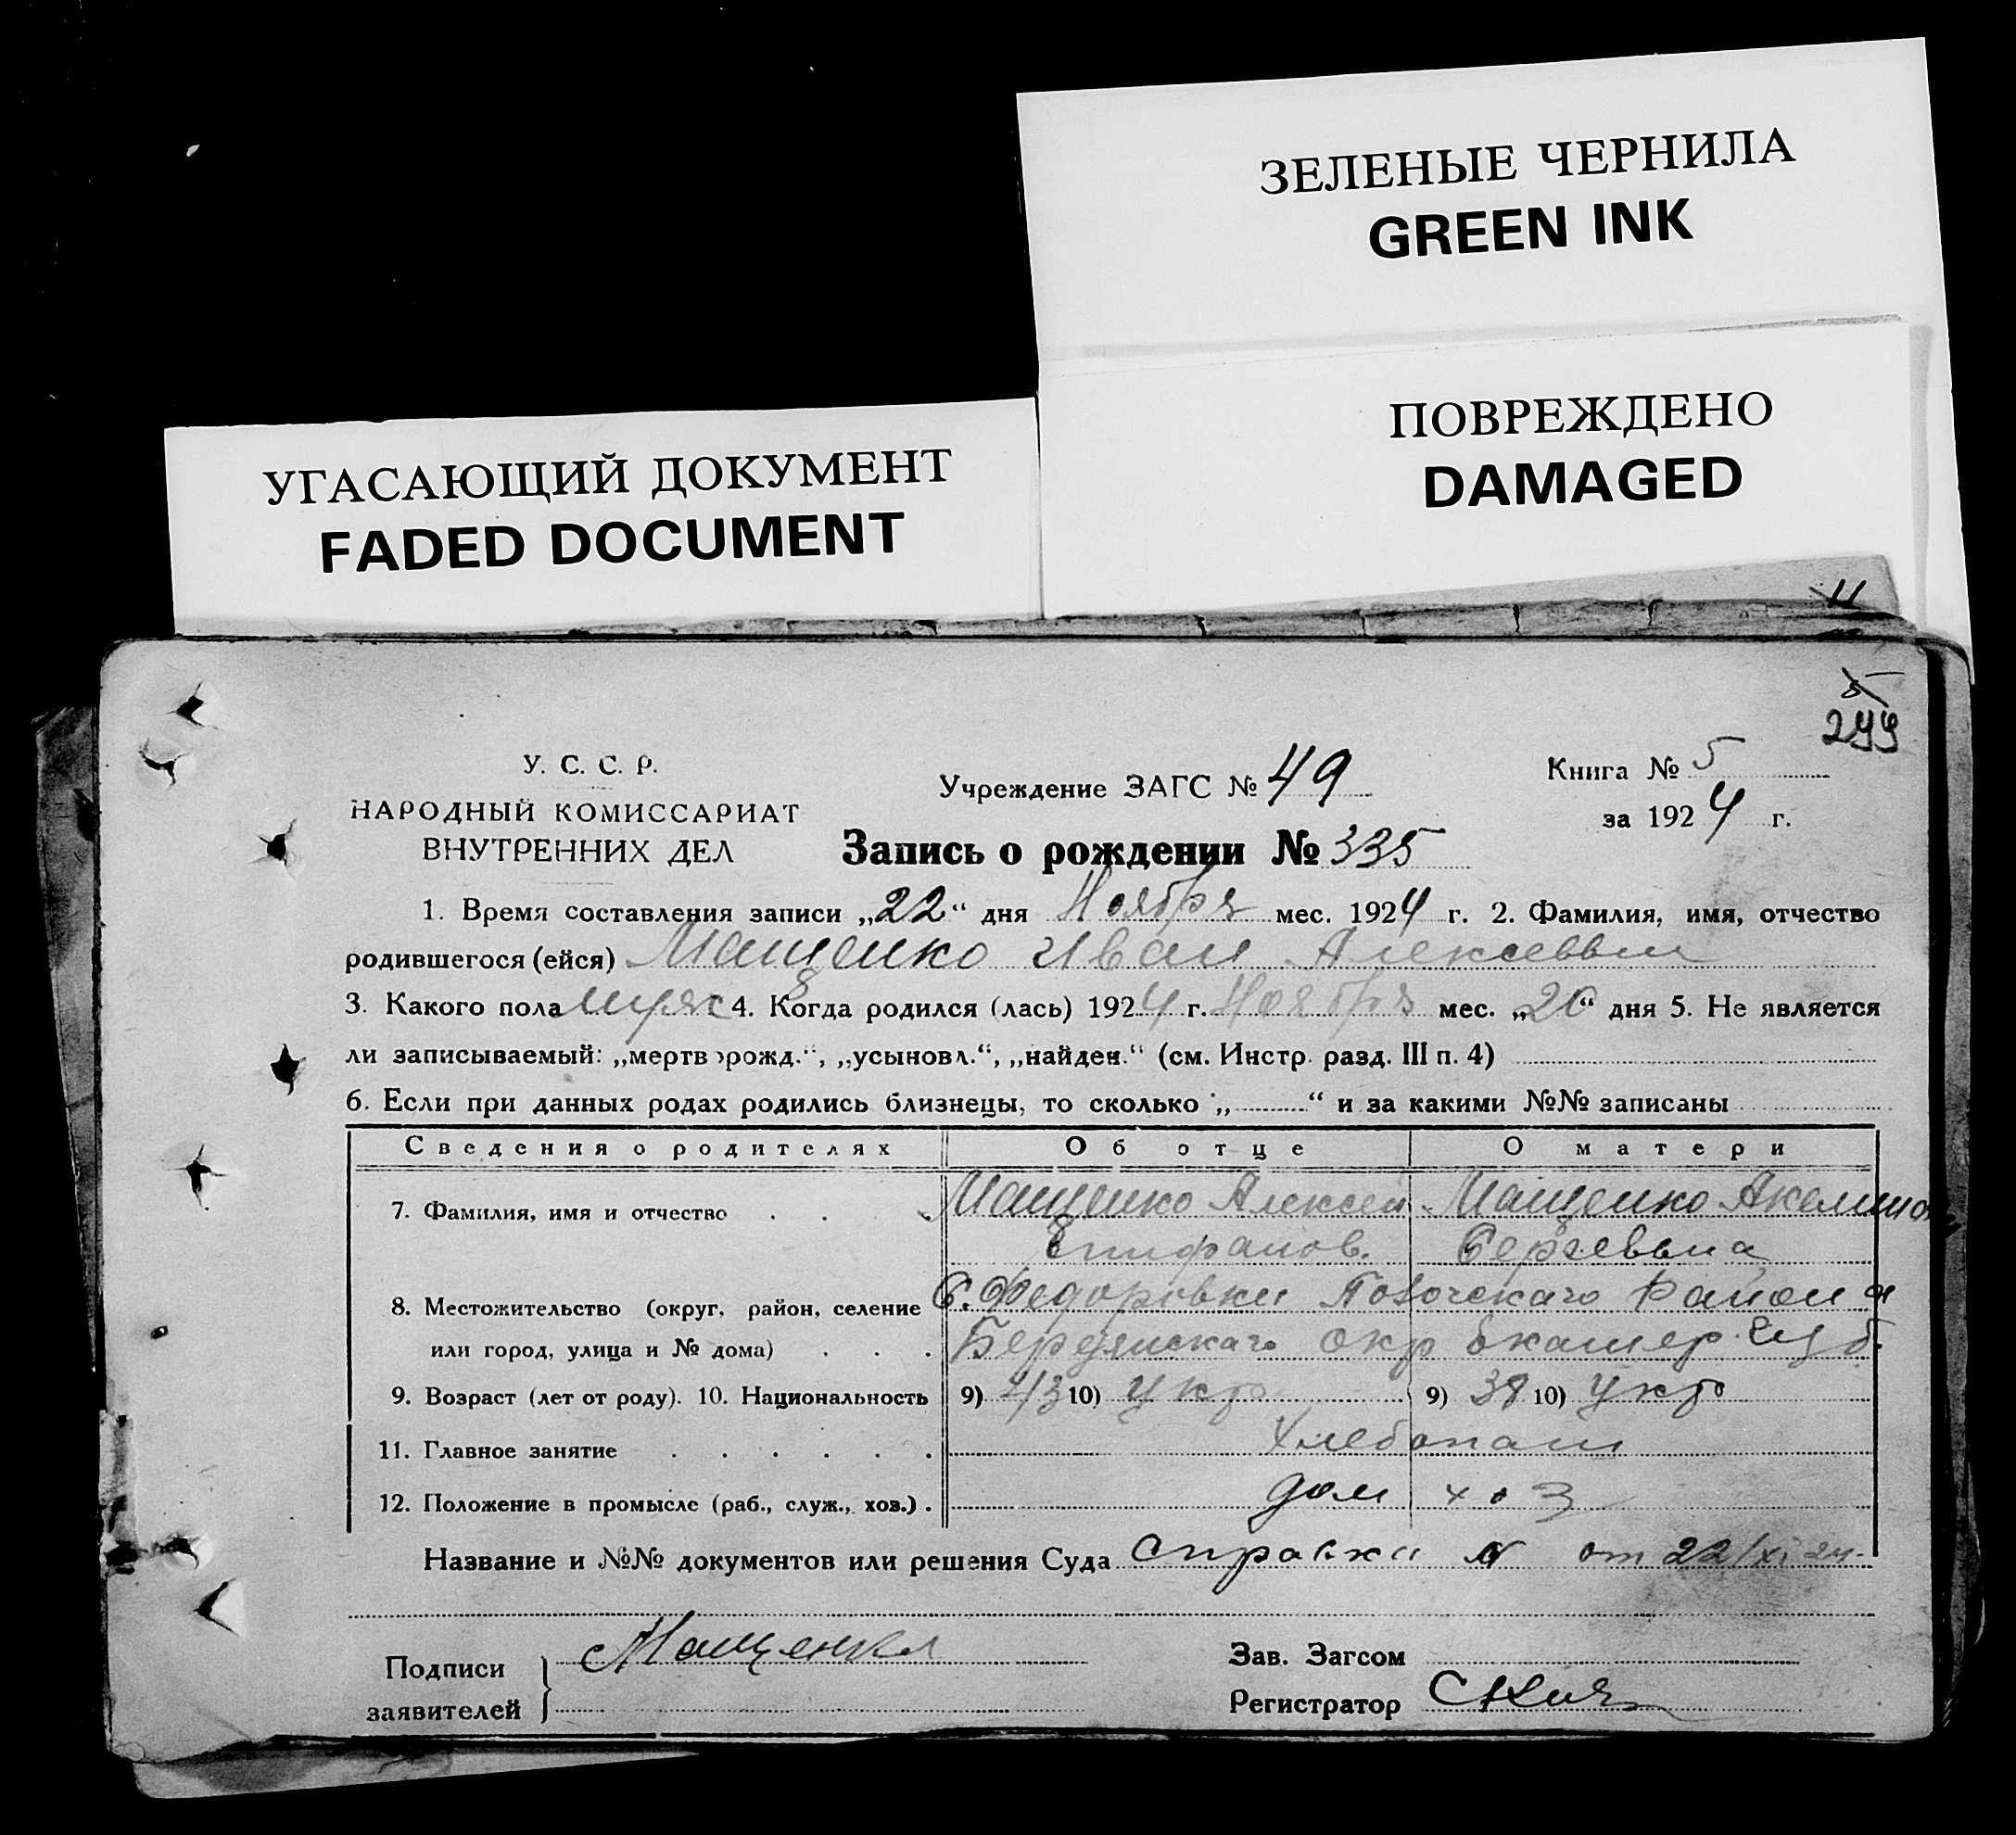 ЗЕЛЕНЫЕ ЧЕРНИЛА
GREEN INK
ПОВРЕЖДЕНО
DAMAGED
УГАСАЮЩИЙ ДОКУМЕНТ
FADED DOCUMENT
11
5
299
У. С. С. Р.
НАРОДНЫЙ КОМИССАРИАТ
ВНУТРЕННИХ ДЕЛ
Учреждение ЗАГС № 49
Книга № 5
за 1924 г.
Запись о рождении № 335
1. Время составления записи „22“ дня Ноября мес. 1924 г. 2. Фамилия, имя, отчество
родившегося (ейся) Мащенко Иван Алексеевич
3. Какого пола муж 4. Когда родился (лась) 1924 г. Ноября мес. „20“ дня 5. Не является
ли записываемый: „мертворожд.“, „усыновл.“, „найден.“ (см. Инстр. разд. III п. 4)
6. Если при данных родах родились близнецы, то сколько „ “ и за какими №№ записаны
Сведения о родителях Об отце О матери
7. Фамилия, имя и отчество Мащенко Алексей Мащенко Акелина
Епифанов. Сергеевна
8. Местожительство (округ, район, селение С. Федоровки района
или город, улица и № дома) Бердянскаго окр Екатер. губ.
9. Возраст (лет от роду). 10. Национальность 9) 43 10) Укр 9) 38 10) Укр
11. Главное занятие Хлебопаш
12. Положение в промысле (раб., служ., хоз.) дом хоз
Название и №№ документов или решения Суда Справки № от 22/XI 24
Подписи заявителей Мащенко
Зав. Загсом
Регистратор